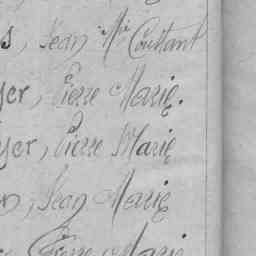 s, Jean Mie Coultant
yer, Pierre Marie.
yer, Pierre Marie
n, Jean Marie
Pierre Marie